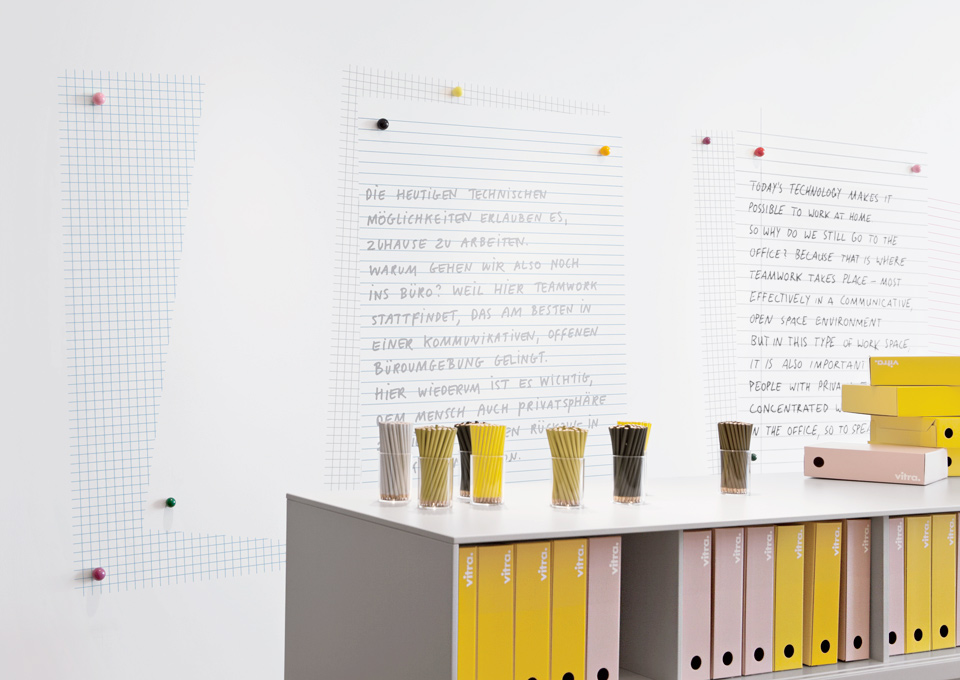 DIE HEUTIGEN TECHNISCHEN
MÖGLICHKEITEN ERLAUBEN ES,
ZUHAUSE ZU ARBEITEN.
WARUM GEHEN WIR ALSO NOCH
INS BÜRO? WEIL HIER TEAMWORK
STATTFINDET, DAS AM BESTEN IN
EINER KOMMUNIKATIVEN, OFFENEN
BÜROUMGEBUNG GELINGT.
HIER WIEDERUM IST ES WICHTIG,
DEM MENSCH AUCH PRIVATSPHÄRE
IN
TODAY'S TECHNOLOGY MAKES IT
POSSIBLE TO WORK AT HOME
SO WHY DO WE STILL GO TO THE
OFFICE? BECAUSE THAT IS WHERE
TEAMWORK TAKES PLACE – MOST
EFFECTIVELY IN A COMMUNICATIVE,
OPEN SPACE ENVIRONMENT
BUT IN THIS TYPE OF WORK SPACE
IT IS ALSO IMPORTANT
PEOPLE WITH PRIVA
CONCENTRATED W
IN THE OFFICE, SO TO SPEA
vitra.
vitra.
vitra.
vitra.
vitra.
vitra.
vitra.
vitra.
vitra.
vitra.
vitra.
vitra.
vitra.
vitra.
vitra.
vitra.